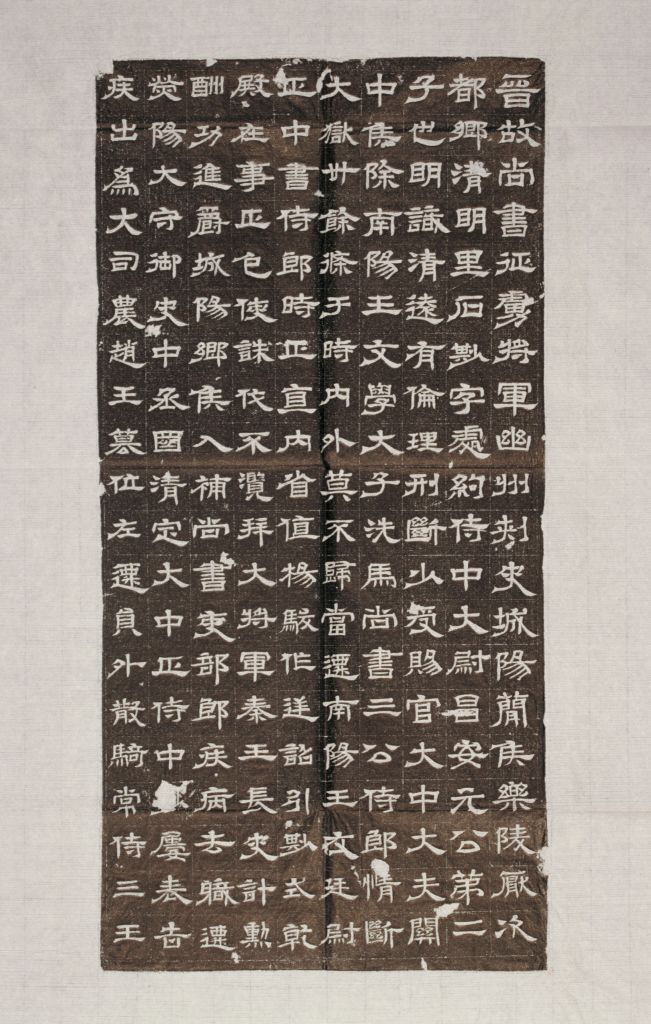 晉故尚書征虜將軍幽州刾史城陽簡侯樂陵厭次
都鄉清明里石尠字處約侍中大尉昌安元公第二
子也明識清遠有倫理刑斷少受賜官大中大夫關
中侯除南陽王文學大子洗馬尚書三公侍郎情斷
大獄卅餘條于時內外莫不歸當遷南陽王友廷尉
正中書侍郎時正直內省值楊駿作逆詔引尠式乾
殿在事正色使誅伐不濫拜大將軍秦王長史計勲
酬功進爵城陽鄉侯入補尚書吏部郎疾病去職遷
熒陽大守御史中丞國清定大中正侍中屢表告
疾出為大司農趙王篡位左遷員外散騎常侍三王